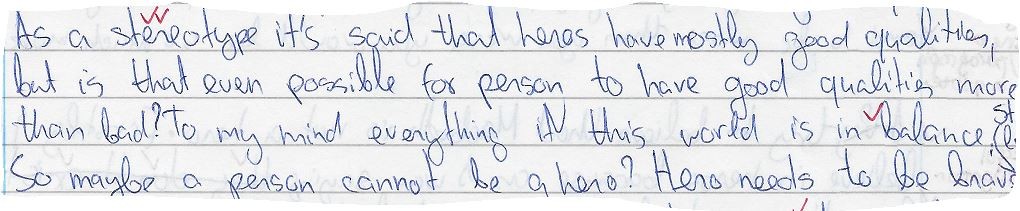 As a stereotype it's said that heros have mostly good qualities,
but is that even possible for person to have good qualities more
than bad? To my mind everything in this world is in balance.
So maybe a person cannot be a hero? Hero needs to be